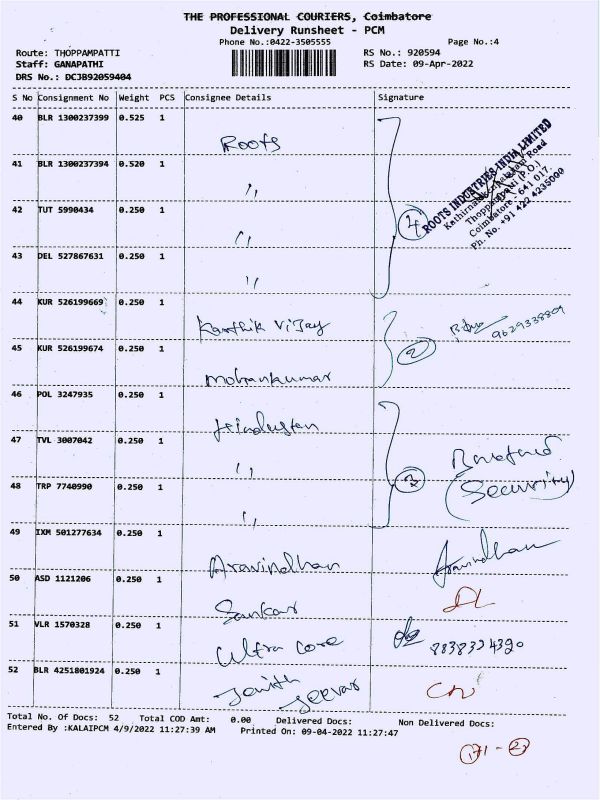 THE PROFESSIONAL COURIERS, Coimbatore
Delivery Runsheet - PCM
Phone No.:0422-3505555 Page No.:4
Route: THOPPAMPATTI RS No.: 920594
Staff: GANAPATHI RS Date: 09-Apr-2022
DRS No.: DCJB92059404
S No Consignment No Weight PCS Consignee Details Signature
40 BLR 1300237399 0.525 1
Roots
41 BLR 1300237394 0.520 1
"
42 TUT 5990434 0.250 1
"
43 DEL 527867631 0.250 1
"
4
ROOTS INDUSTRIES INDIA LIMITED
Thoppampatti (P.O.)
Coimbatore - 641 017.
Ph. No. +91 422 4235000
44 KUR 526199669 0.250 1
Karthik Vijay
2
9629338809
45 KUR 526199674 0.250 1
Mohankumar
46 POL 3247935 0.250 1
Hindustan
47 TVL 3007042 0.250 1
"
48 TRP 7740990 0.250 1
"
3
(Security)
49 IXM 501277634 0.250 1
Aravindhan Aravindhan
50 ASD 1121206 0.250 1
Sankar
51 VLR 1570328 0.250 1
Ultra Core 8838324320
52 BLR 4251801924 0.250 1
Total No. Of Docs: 52 Total COD Amt: 0.00 Delivered Docs: Non Delivered Docs:
Entered By :KALAIPCM 4/9/2022 11:27:39 AM Printed On: 09-04-2022 11:27:47